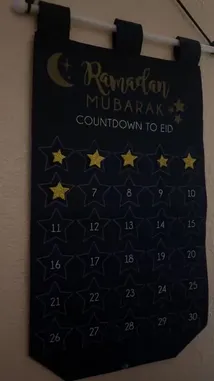 Ramadan
MUBARAK
COUNTDOWN TO EID
7 8 9 10
11 12 13 14 15
16 17 18 19 20
21 22 23 24 25
26 27 28 29 30